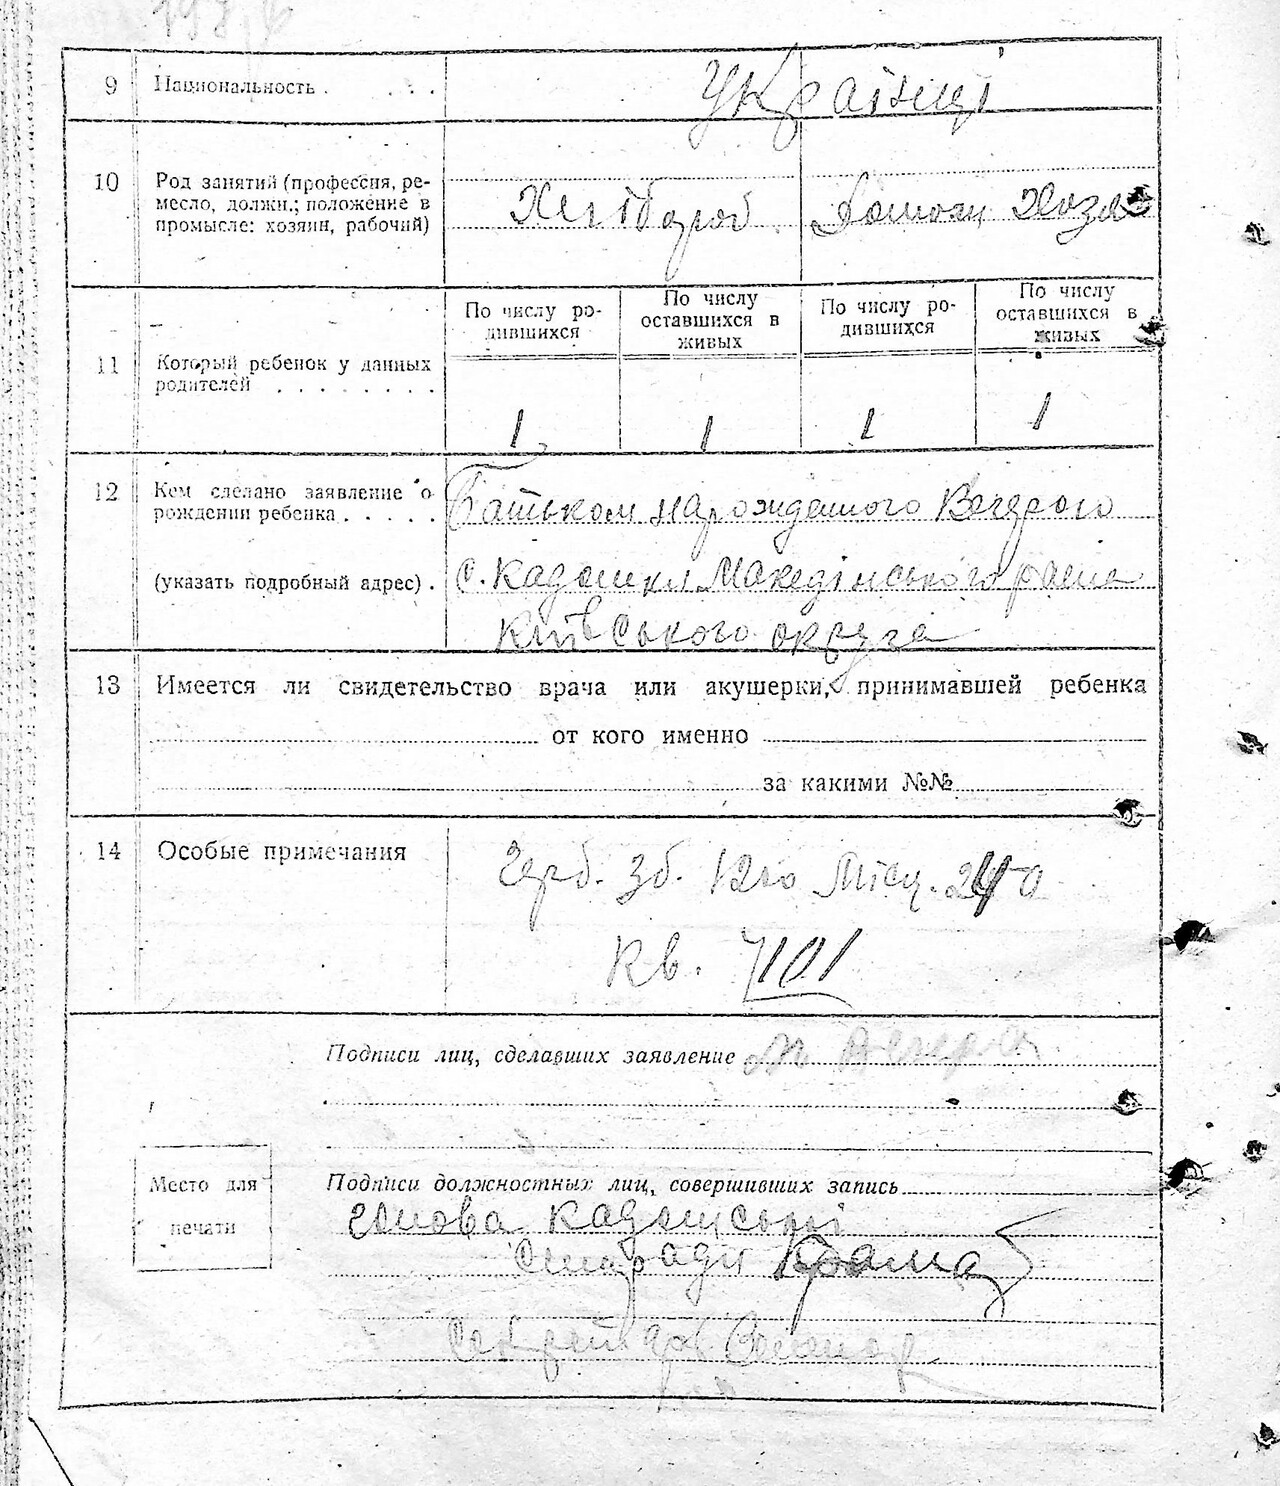 9 Национальность . . . . Українці
10 Род занятий (профессия, ре-
месло, должн.; положение в
промысле: хозяин, рабочий)
Хлібороб Домогц Хозя
По числу ро-
дившихся
По числу
оставшихся в
живых
По числу ро-
дившихся
По числу
оставшихся в
живых
11 Который ребенок у данных
родителей . . . . . . . .
1 1 1 1
12 Кем сделано заявление о
рождении ребенка . . . . .
Батьком нарожденного Вечерого
(указать подробный адрес) . с. Кадомки Македінського
Київського округа
13 Имеется ли свидетельство врача или акушерки, принимавшей ребенка
от кого именно
за какими №№
14 Особые примечания
Герб. Зб. 12го Місц.
Кв. 7101
Подписи лиц, сделавших заявление
Место для
печати
Подписи должностных лиц, совершивших запись
Голова Кадомської
Сільради
Секретар